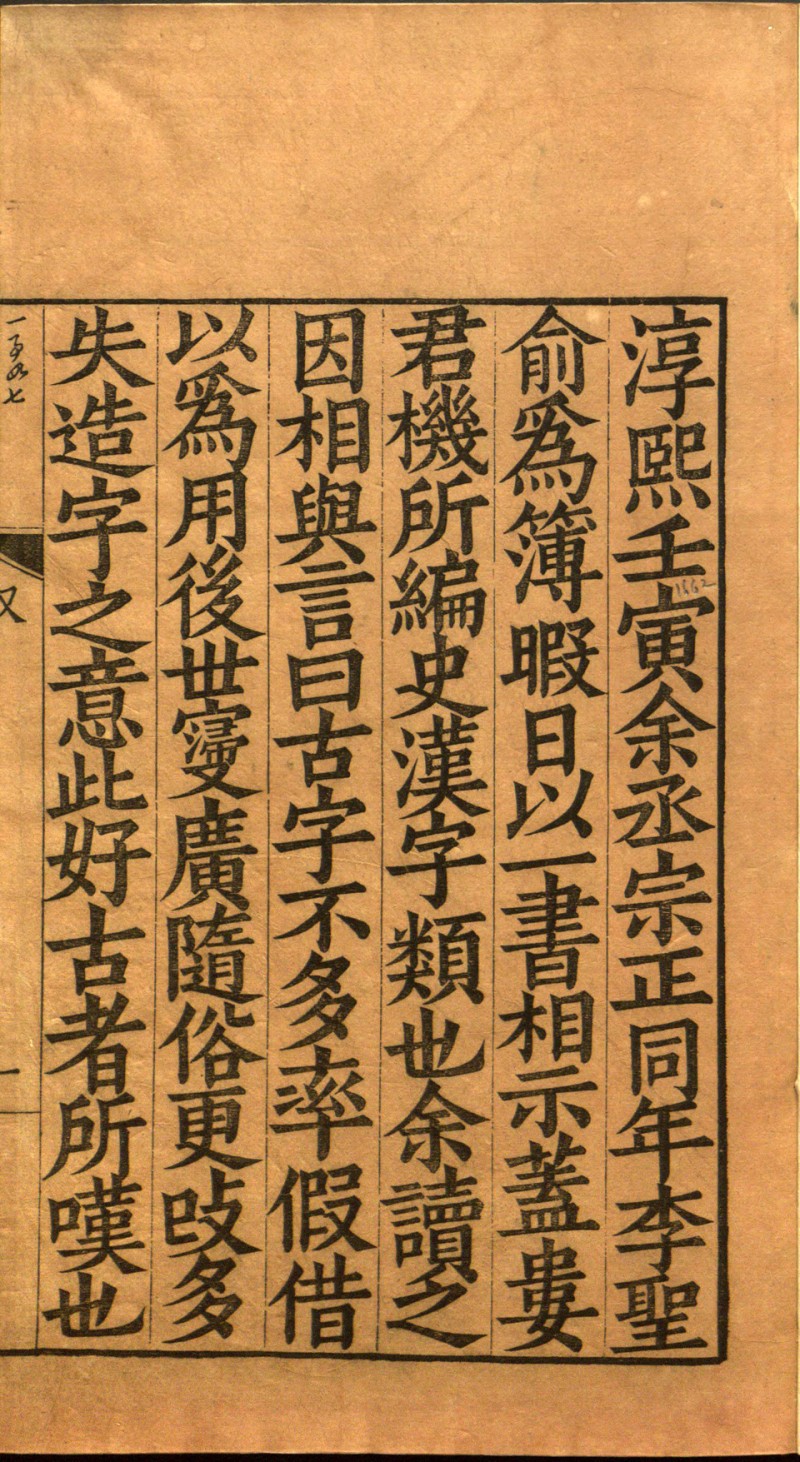 淳熙壬寅余丞宗正同年李聖
俞爲簿暇日以一書相示蓋婁
君機所編史漢字類也余讀之
因相與言曰古字不多率假借
以爲用後世寖廣隨俗更改多
失造字之意此好古者所嘆也